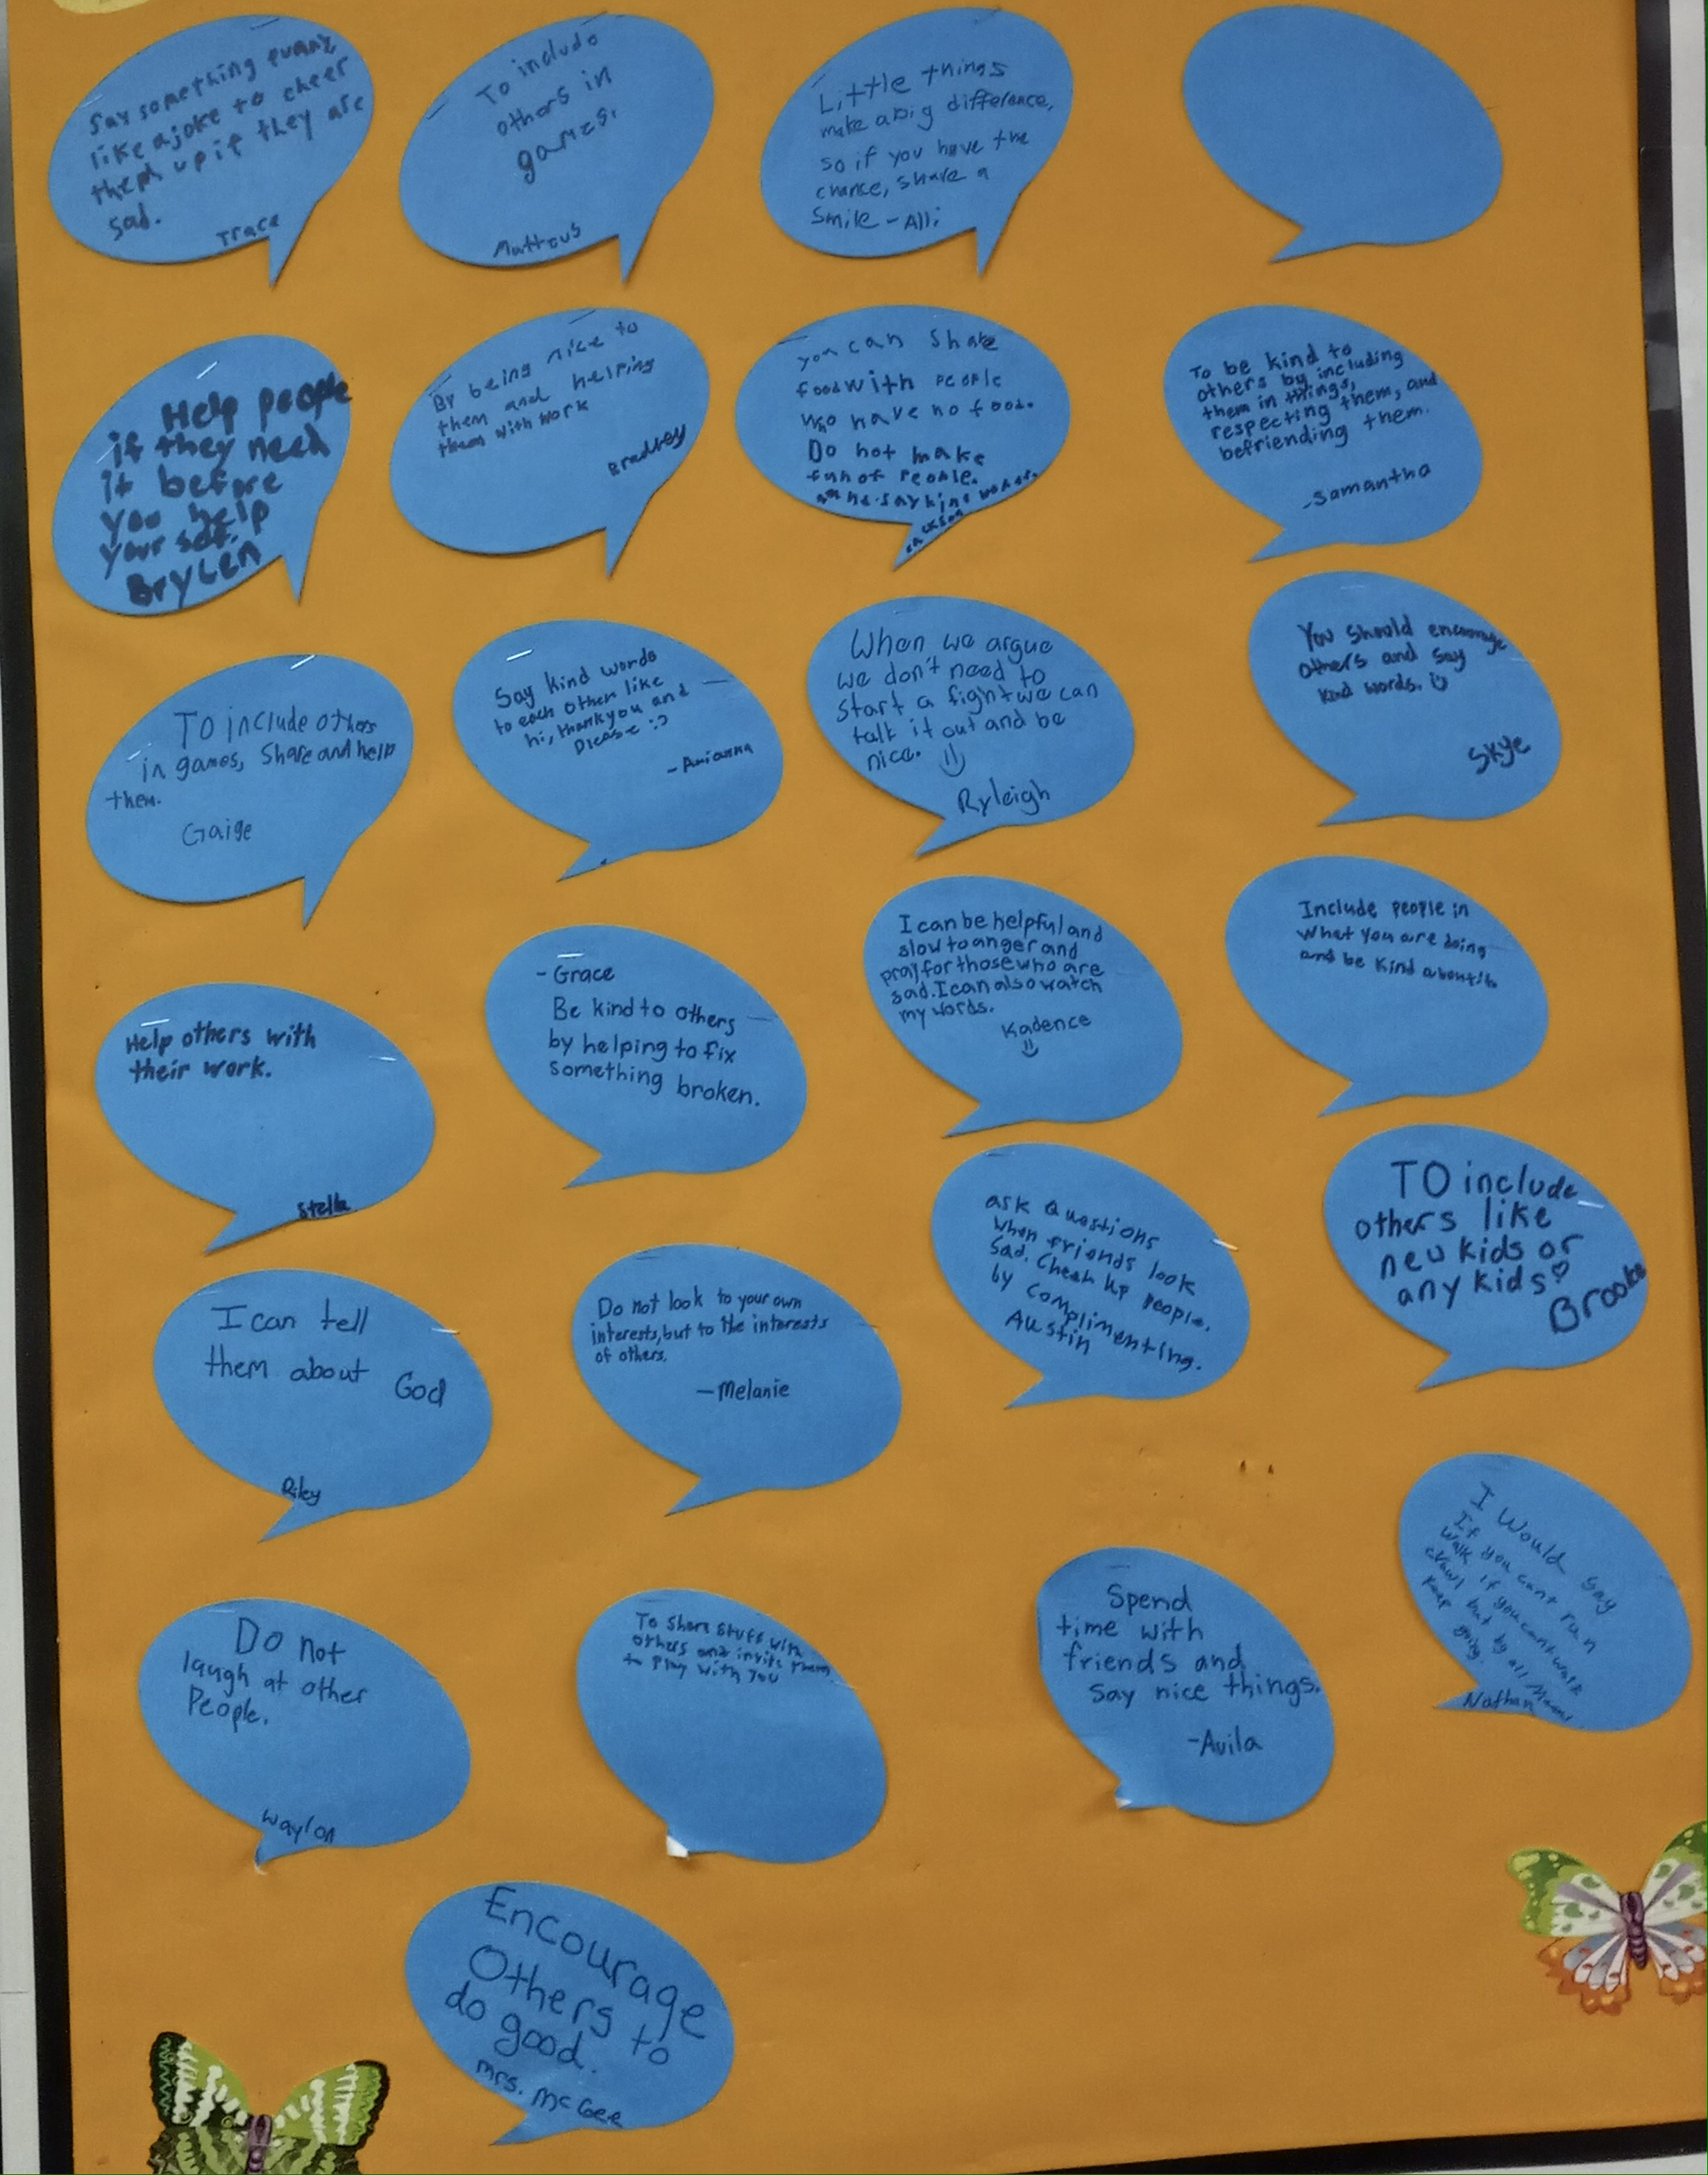 Say something funny
like a joke to cheer
them up if they are
sad.
Trace
To include
others in
games.
Little things
make a big difference,
so if you have the
chance, share a
smile - Alli
Help people
if they need
it before
you help
your self.
Brylen
By being nice to
them and helping
them with work
Bradley
you can share
food with people
who have no food.
Do not make
fun of people.
To be kind to
others by including
them in things,
respecting them, and
befriending them.
-Samantha
TO include others
in games, Share and help
them.
Gaige
Say kind words
to each other like
hi, thank you and
please :)
- Arianna
When we argue
we don't need to
start a fight we can
talk it out and be
nice.
Ryleigh
You should encourage
others and say
kind words.
Skye
Help others with
their work.
Stella
- Grace
Be kind to others
by helping to fix
something broken.
I can be helpful and
slow to anger and
pray for those who are
sad. I can also watch
my words.
Kadence
Include people in
what you are doing
and be kind about it
I can tell
them about God
Riley
Do not look to your own
interests, but to the interests
of others.
-Melanie
ask Questions
when friends look
sad. Cheer up people.
by complimenting.
Austin
TO include
others like
new kids or
any kids
Brooke
Do not
laugh at other
People.
Waylon
To share stuff with
others and invite them
to play with you
Spend
time with
friends and
say nice things.
-Avila
I Would say
If you cant run
walk if you cant walk
crawl but by all
keep going.
Nathan
Encourage
Others to
do good.
Mrs. McGee